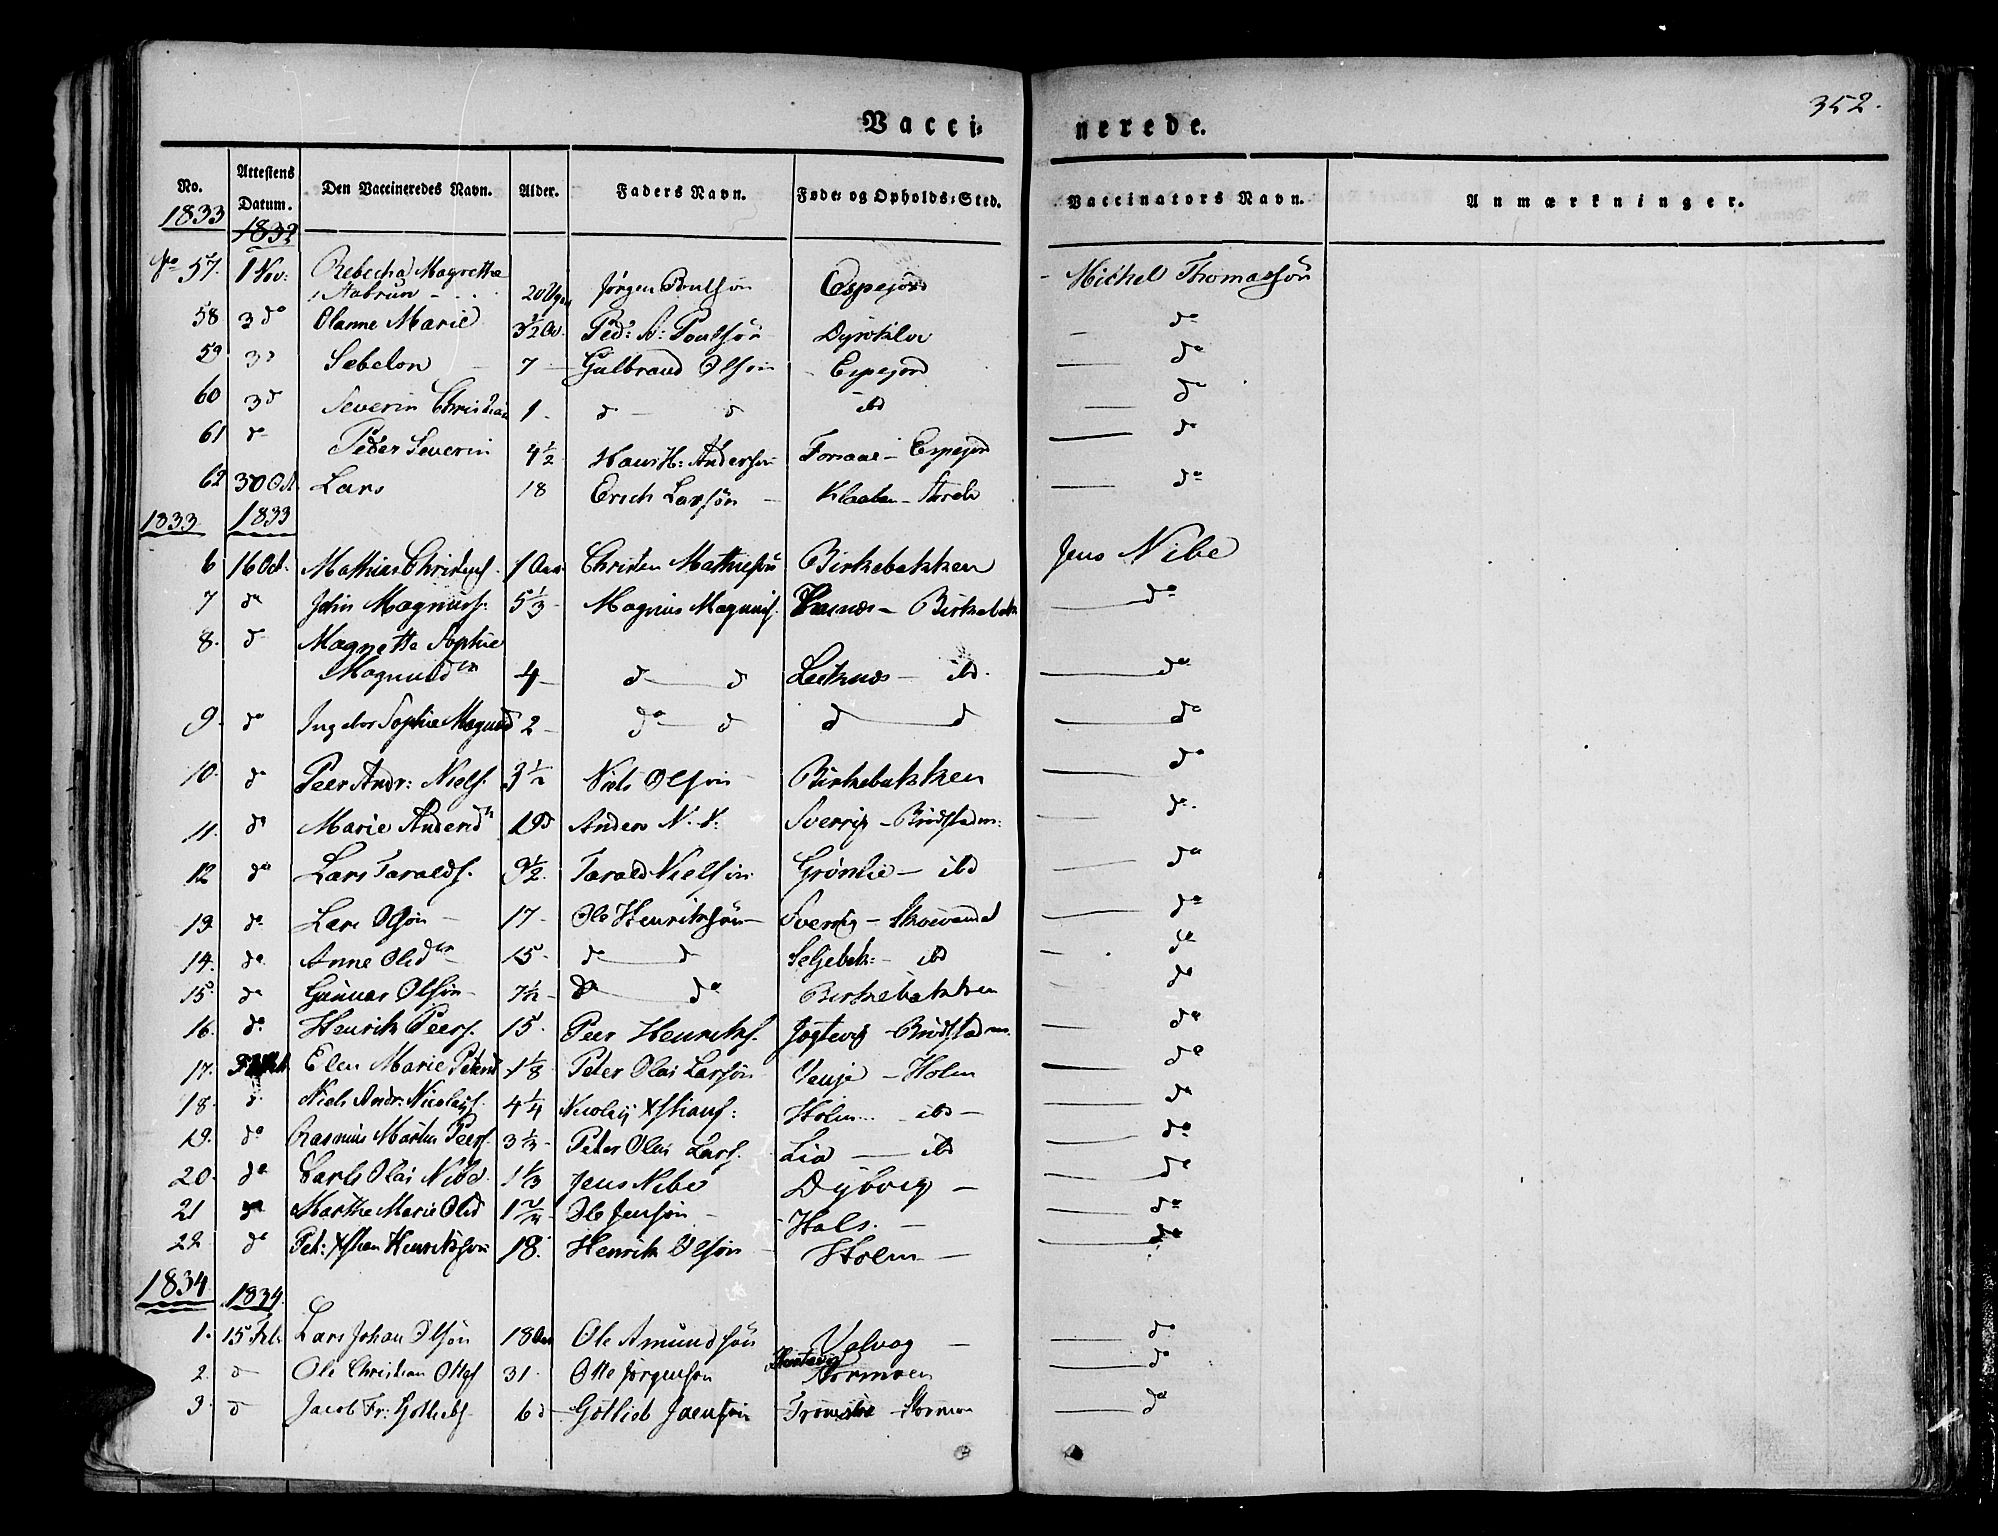 Vacci- nerede. 352.
No. Attestens Datum. Den Vaccineredes Navn. Alder. Faders Navn. Føde- og Opholds-Sted. Vaccinators Navn. Anmærkninger.
1833 1832
No 57. 1 Nov: Rebecha Magretha
20 Ugen Jørgen Poulsøn Espejord Michel Thomassøn
58 3 do Olanne Marie 3½ Ped: A: Poulsøn do
59 3 d Sebelon 7 Gulbrand Olsøn Espejord do
60 3 d Severin Christian 1 d d ibd do
61 d Peder Severin 4½ Hans H: Andersøn - Espejord do
62 30 Oct Lars 18 Erich Larsøn do
1833 1833
6 16 Oct. Mathias Christens. 1 Aar Christen Mathiesøn Birkebakken Jens Nibe
7 do John Magnus. 5⅓ Magnus Magnus. - Birkebak do
8. d Magrette Sophie
Magnusd 4 d d - ibd. do
9. do Sophie Magnusd 2 do d d d do
10. do Peer Andr: Niels. 3½ Niels Olsøn Birkebakken do
11. do Marie Andersd 19 Anders N. N: Sverrig - do
12 do Lars Taralds. 9½ Tarald Nielsøn Grønlie - ibd do
13 do Lars Olsøn 17 Ole Henriksøn Sverrig - do
14. do Anne Olsd 15 d d Seljebak: - ibd do
15. do Gunnar Olsøn 7½ do do Birkebakken do
16. do Henrik Peers. 15. Peer Henriks. do
17. Elen Marie Petersd 1⅛ Peter Olai Larsøn - Holm do
18. d Niels Andr: Nicolays. 4¼ Nicolay Xstians: Holm - ibd do
19. do Rasmus Martin Peers. 3⅓ Peter Olai Lars. Lia - ibd do
20. do Carls Olai Nibe 1⅓ Jens Nibe Dyboeg do
21 do Marthe Marie Olsd 1⅔ Ole Jensøn Hals. do
22 do Pet: Xstian Henriksøn 18. Henrik Olsøn Holm do
1834 1834
1. 15 Feb. Lars Johan Olsøn 18 Aar Ole Amundsøn Valvog do
2. d Ole Christian Ottes. 31. Otte Jørgensøn Stormoen do
3. d Jacob Fr: Gotliebs. 6 d Gotlieb - Stormoe do